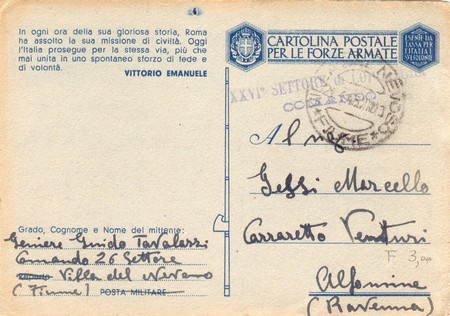 In ogni ora della sua gloriosa storia, Roma
ha assolto la sua missione di civiltà. Oggi
l'Italia prosegue per la stessa via, più che
mai unita in uno spontaneo sforzo di fede e
di volontà.
VITTORIO EMANUELE
CARTOLINA POSTALE
PER LE FORZE ARMATE
ESENTE DA
TASSA PER
L'ITALIA
XXVI° SETTORE DI
COMANDO
FIUME
Al
Gessi Marcello
Carraretto Venturi
Alfonsine
(Ravenna)
F 3,00
Grado, Cognome e Nome del mittente:
Geniere Guido Tavalazzi
Comando 26 Settore
Villa del Nevoso
(Fiume) POSTA MILITARE